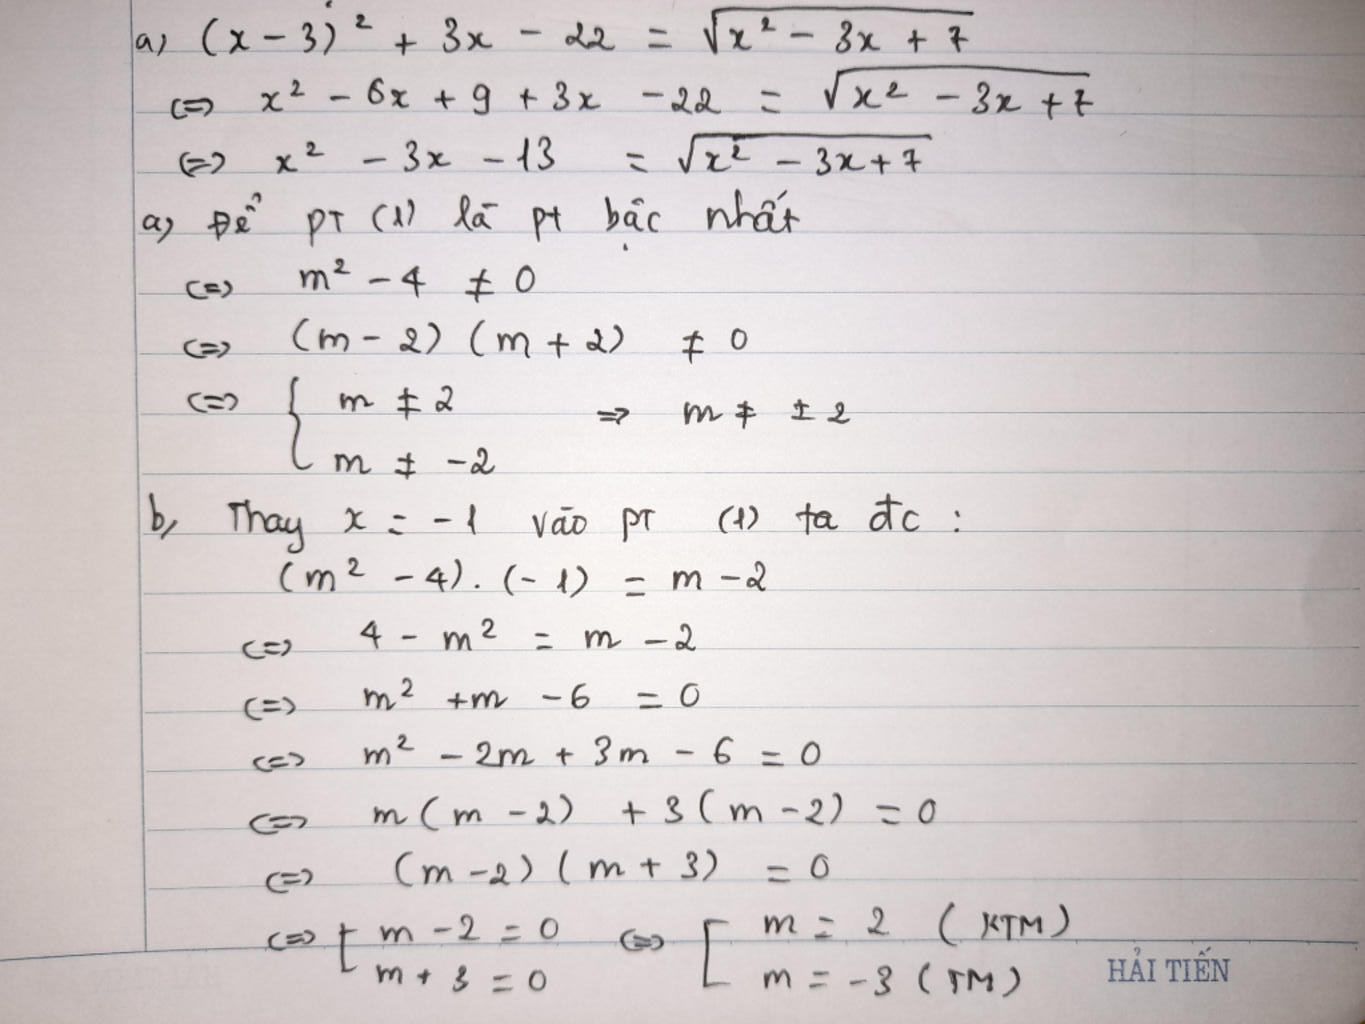 a) (x - 3)² + 3x - 22 = √(x² - 3x + 7)
<=> x² - 6x + 9 + 3x - 22 = √(x² - 3x + 7)
<=> x² - 3x - 13 = √(x² - 3x + 7)
a) Để PT (1) là pt bậc nhất
<=> m² - 4 ≠ 0
<=> (m - 2) (m + 2) ≠ 0
<=> { m ≠ 2 => m ≠ ± 2
m ≠ -2
b, Thay x = -1 vào PT (1) ta đc :
(m² - 4). (- 1) = m - 2
<=> 4 - m² = m - 2
<=> m² + m - 6 = 0
<=> m² - 2m + 3m - 6 = 0
<=> m (m - 2) + 3 (m - 2) = 0
<=> (m - 2) (m + 3) = 0
<=> [ m - 2 = 0 <=> [ m = 2 (KTM)
m + 3 = 0 m = -3 (TM)
HẢI TIẾN